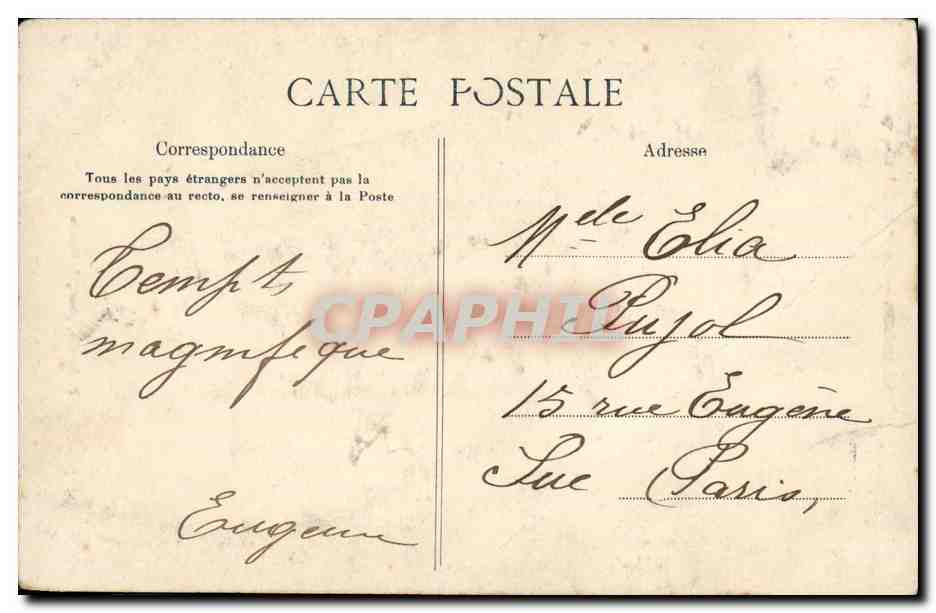 CARTE POSTALE
Correspondance
Tous les pays étrangers n'acceptent pas la
correspondance au recto, se renseigner à la Poste
Tempts
magnifeque
Eugene
Adresse
Mele Elia
Pujol
15 rue Eugène
Sue Paris,
CPAPHIL